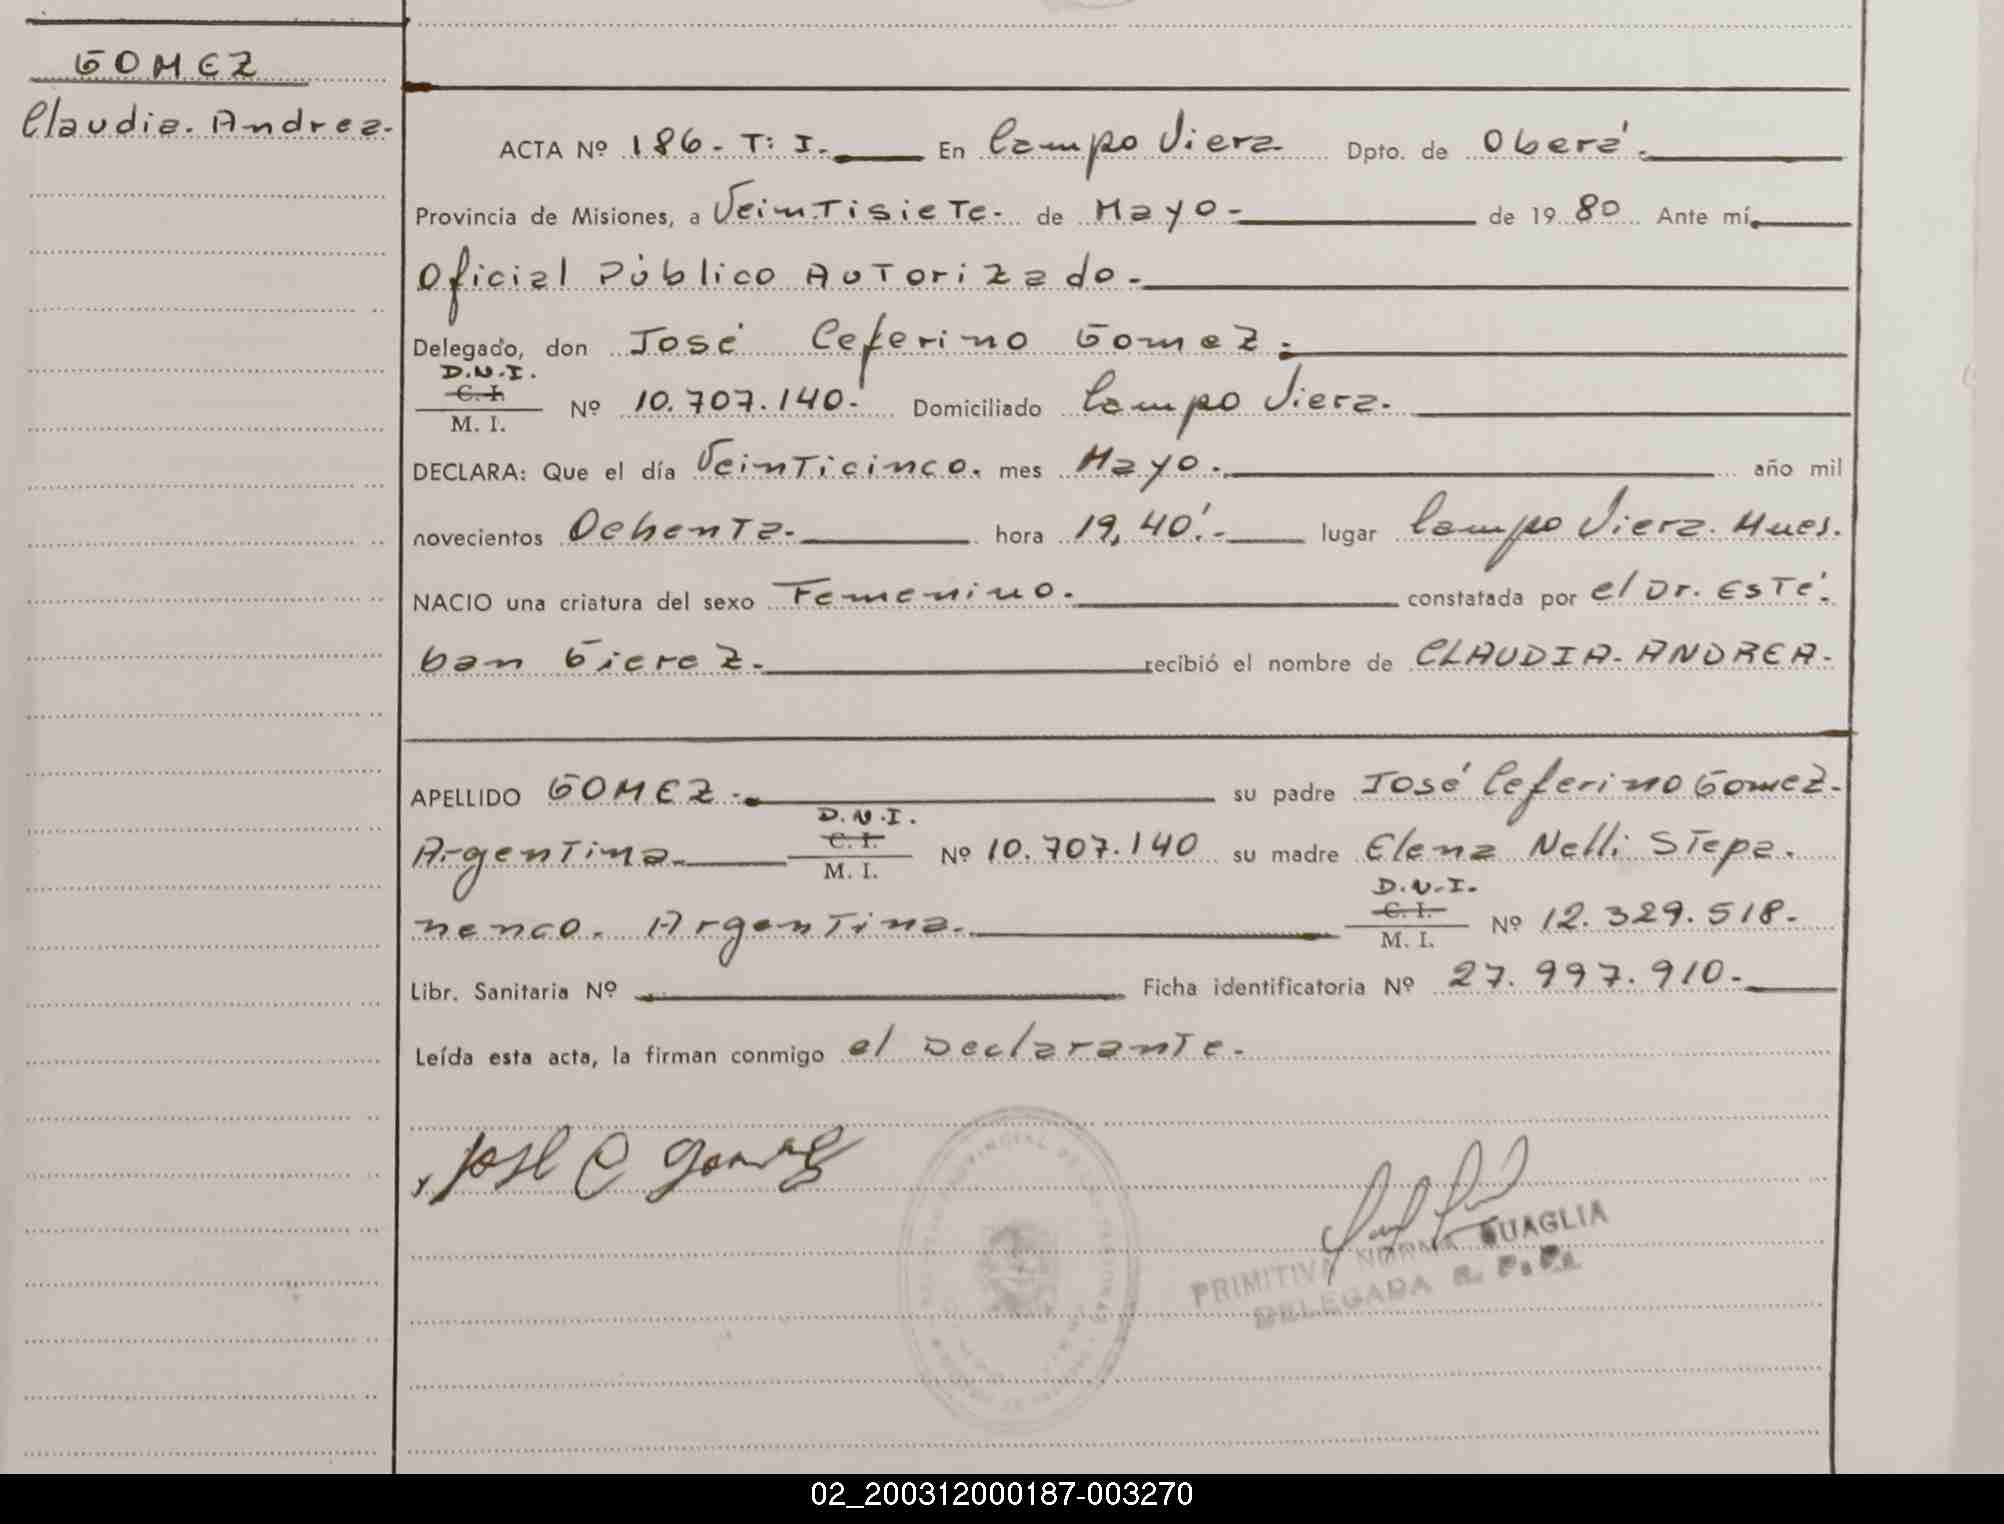 GOMEZ
Claudia. Andrea.
ACTA Nº 186. T: I. En Campo Viera Dpto. de Oberá.
Provincia de Misiones, a Veintisiete. de Mayo- de 19 80 Ante mí,
Oficial Público Autorizado.
Delegado, don José Ceferino Gomez.
D.N.I.
C. I.
M. I.
Nº 10.707.140. Domiciliado Campo Viera.
DECLARA: Que el día Veinticinco. mes Mayo. año mil
novecientos Ochenta. hora 19,40'. lugar Campo Viera. Mnes.
NACIO una criatura del sexo Femenino. constatada por el Dr. Esté.
ban Gierez. recibió el nombre de CLAUDIA. ANDREA.
APELLIDO GOMEZ. su padre José Ceferino Gomez.
D.N.I.
Argentina. C. I. Nº 10.707.140 su madre Elena Nelli Stepa.
M. I.
D.N.I.
nenco. Argentina. C. I. Nº 12.329.518.
M. I.
Libr. Sanitaria Nº Ficha identificatoria Nº 27.997.910.
Leída esta acta, la firman conmigo el Declarante.
José C Gomez
PRIMITIVA NORMA QUAGLIA
DELEGADA R. P. P.
02_200312000187-003270